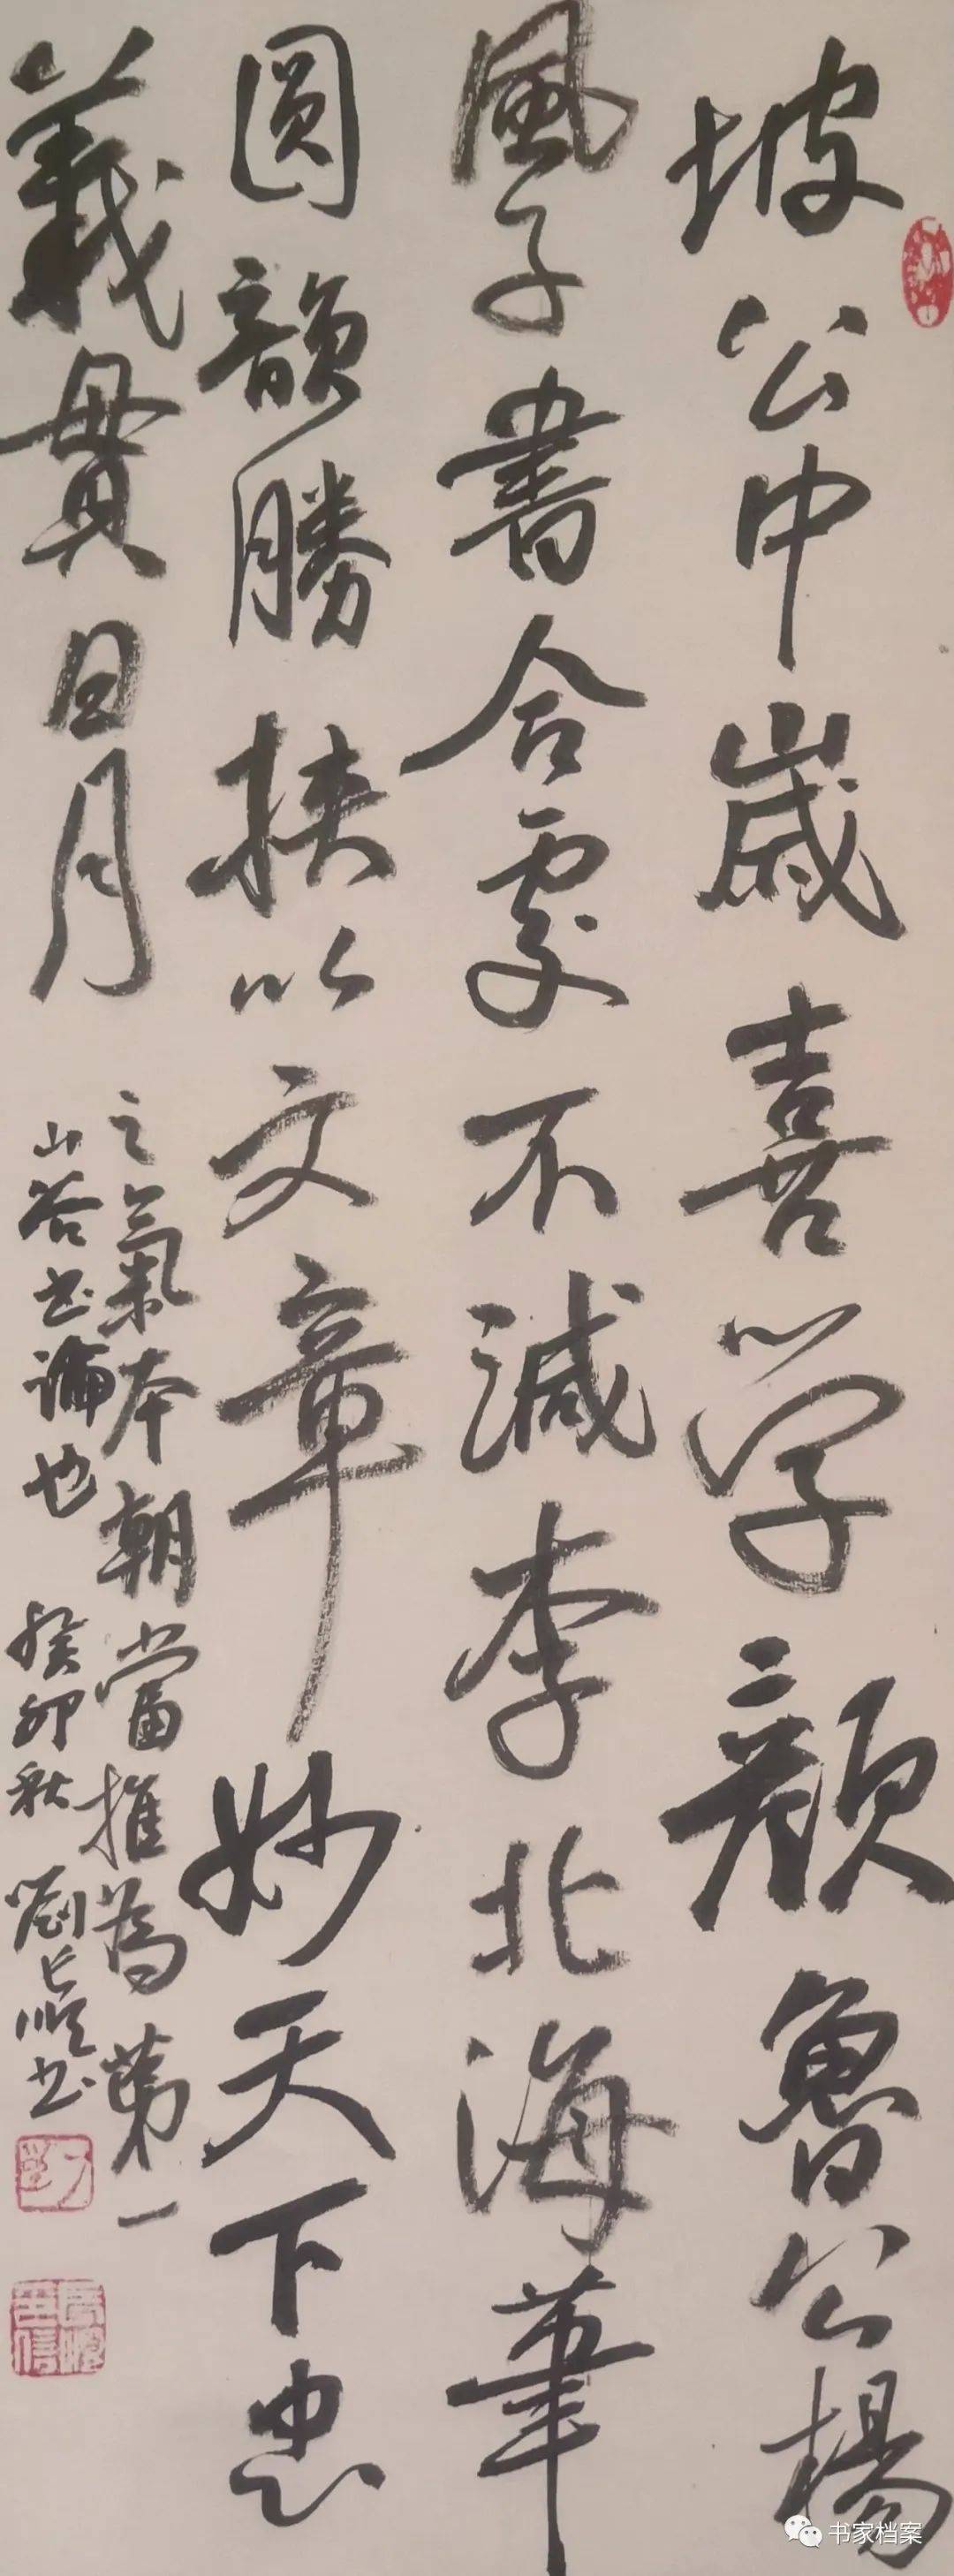 坡公中嵗喜学顔魯公楊
風子書合處不減李北海筆
圓韻勝挟以文章妙天下忠
義貫日月
之氣本朝當推為第一
山谷书論也 癸卯秋 劉占順书
书家档案